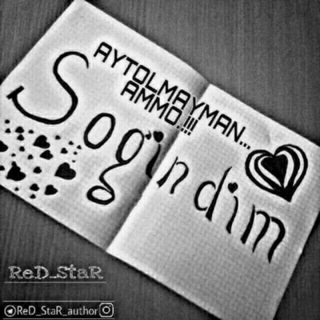 AYTOLMAYMAN...
AMMO..!!!
Sogindim
ReD_StaR
ReD_StaR_author